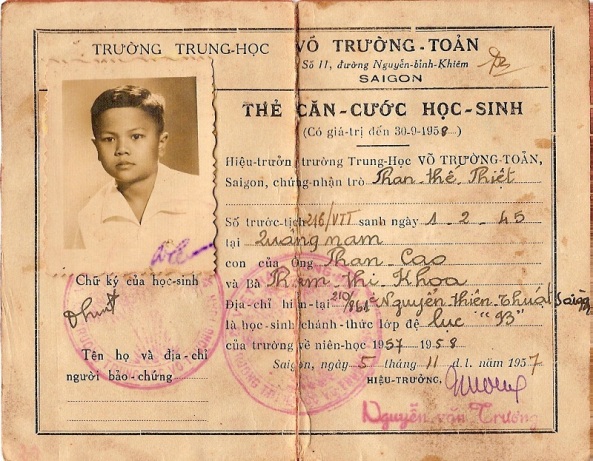 TRƯỜNG TRUNG-HỌC VÕ TRƯỜNG-TOẢN
Số 11, đường Nguyễn-bỉnh-Khiêm
SAIGON
THẺ CĂN-CƯỚC HỌC-SINH
(Có giá-trị đến 30-9-1958)
Hiệu-trưởng trường Trung-Học VÕ TRƯỜNG-TOẢN,
Saigon, chứng-nhận trò Phan thế Thiệt
Số trước-tịch 216/VTT sanh ngày 1-2-45
tại Quảng nam
con của Ông Phan Cao
và Bà Phạm thị Khoa
Địa-chỉ hiện-tại Nguyễn thiện Thuật Saigon
là học-sinh chánh-thức lớp đệ lục "B3"
của trường về niên-học 1957-1958
Saigon, ngày 5 tháng 11 d.l. năm 1957
HIỆU-TRƯỞNG,
Nguyễn văn Trương
Chữ ký của học-sinh
Tên họ và địa-chỉ
người bảo-chứng.